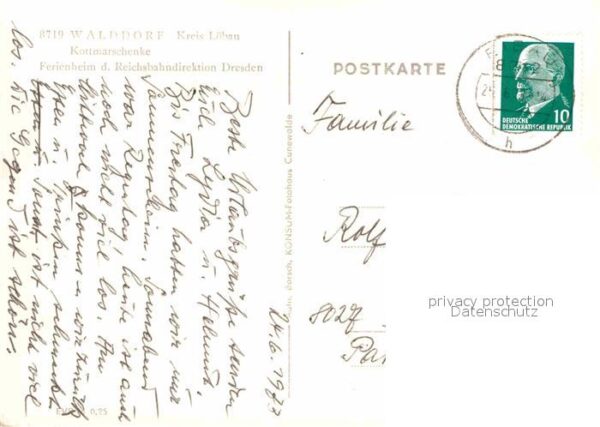 8719 WALDDORF Kreis Löbau
Kottmarschenke
Ferienheim d. Reichsbahndirektion Dresden
POSTKARTE
DEUTSCHE
DEMOKRATISCHE REPUBLIK
10
h
Familie
Rolf
8027
24.6.1973
Beste Urlaubsgrüße senden
Euch Lydia u. Helmut.
Bis Freitag hatten wir nur
Sonnenschein. Sonnabend
war Regentag, heute ist auch
noch nicht viel los. Am
Mittwoch kommen wir zurück
Essen u. Trinken schmeckt
Sonst ist nicht viel
los. Die Gegend ist schön.
Borsch, KONSUM-Fotohaus Cunewalde
0,25
privacy protection
Datenschutz